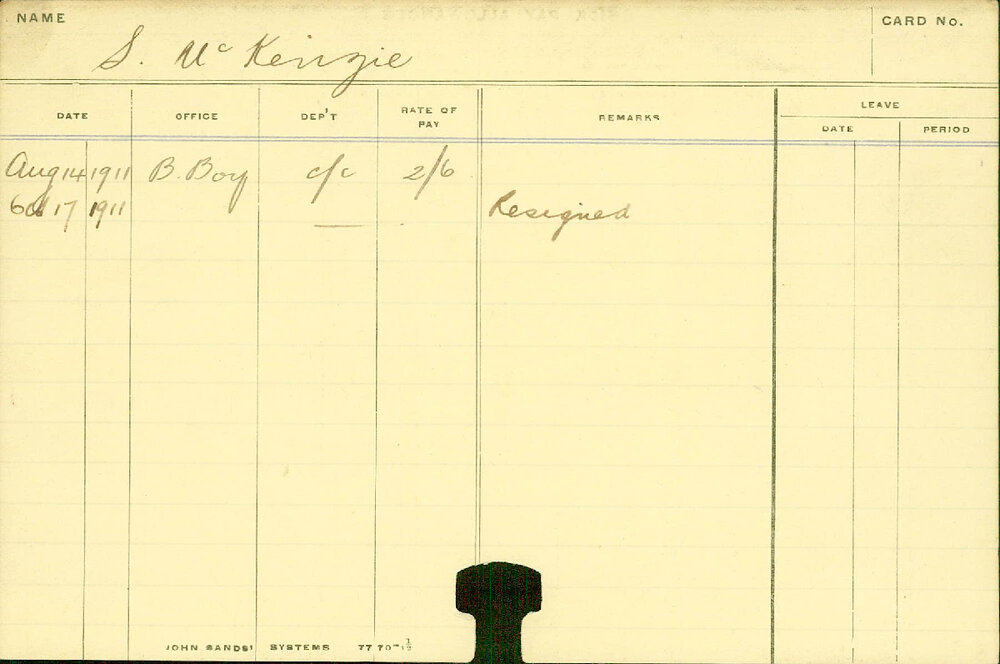 NAME CARD No.
S. McKenzie
DATE OFFICE DEP'T RATE OF PAY REMARKS LEAVE
DATE PERIOD
Aug 14 1911 B. Boy c/c 2/6
Oct 17 1911 Resigned
JOHN SANDS' SYSTEMS 7770